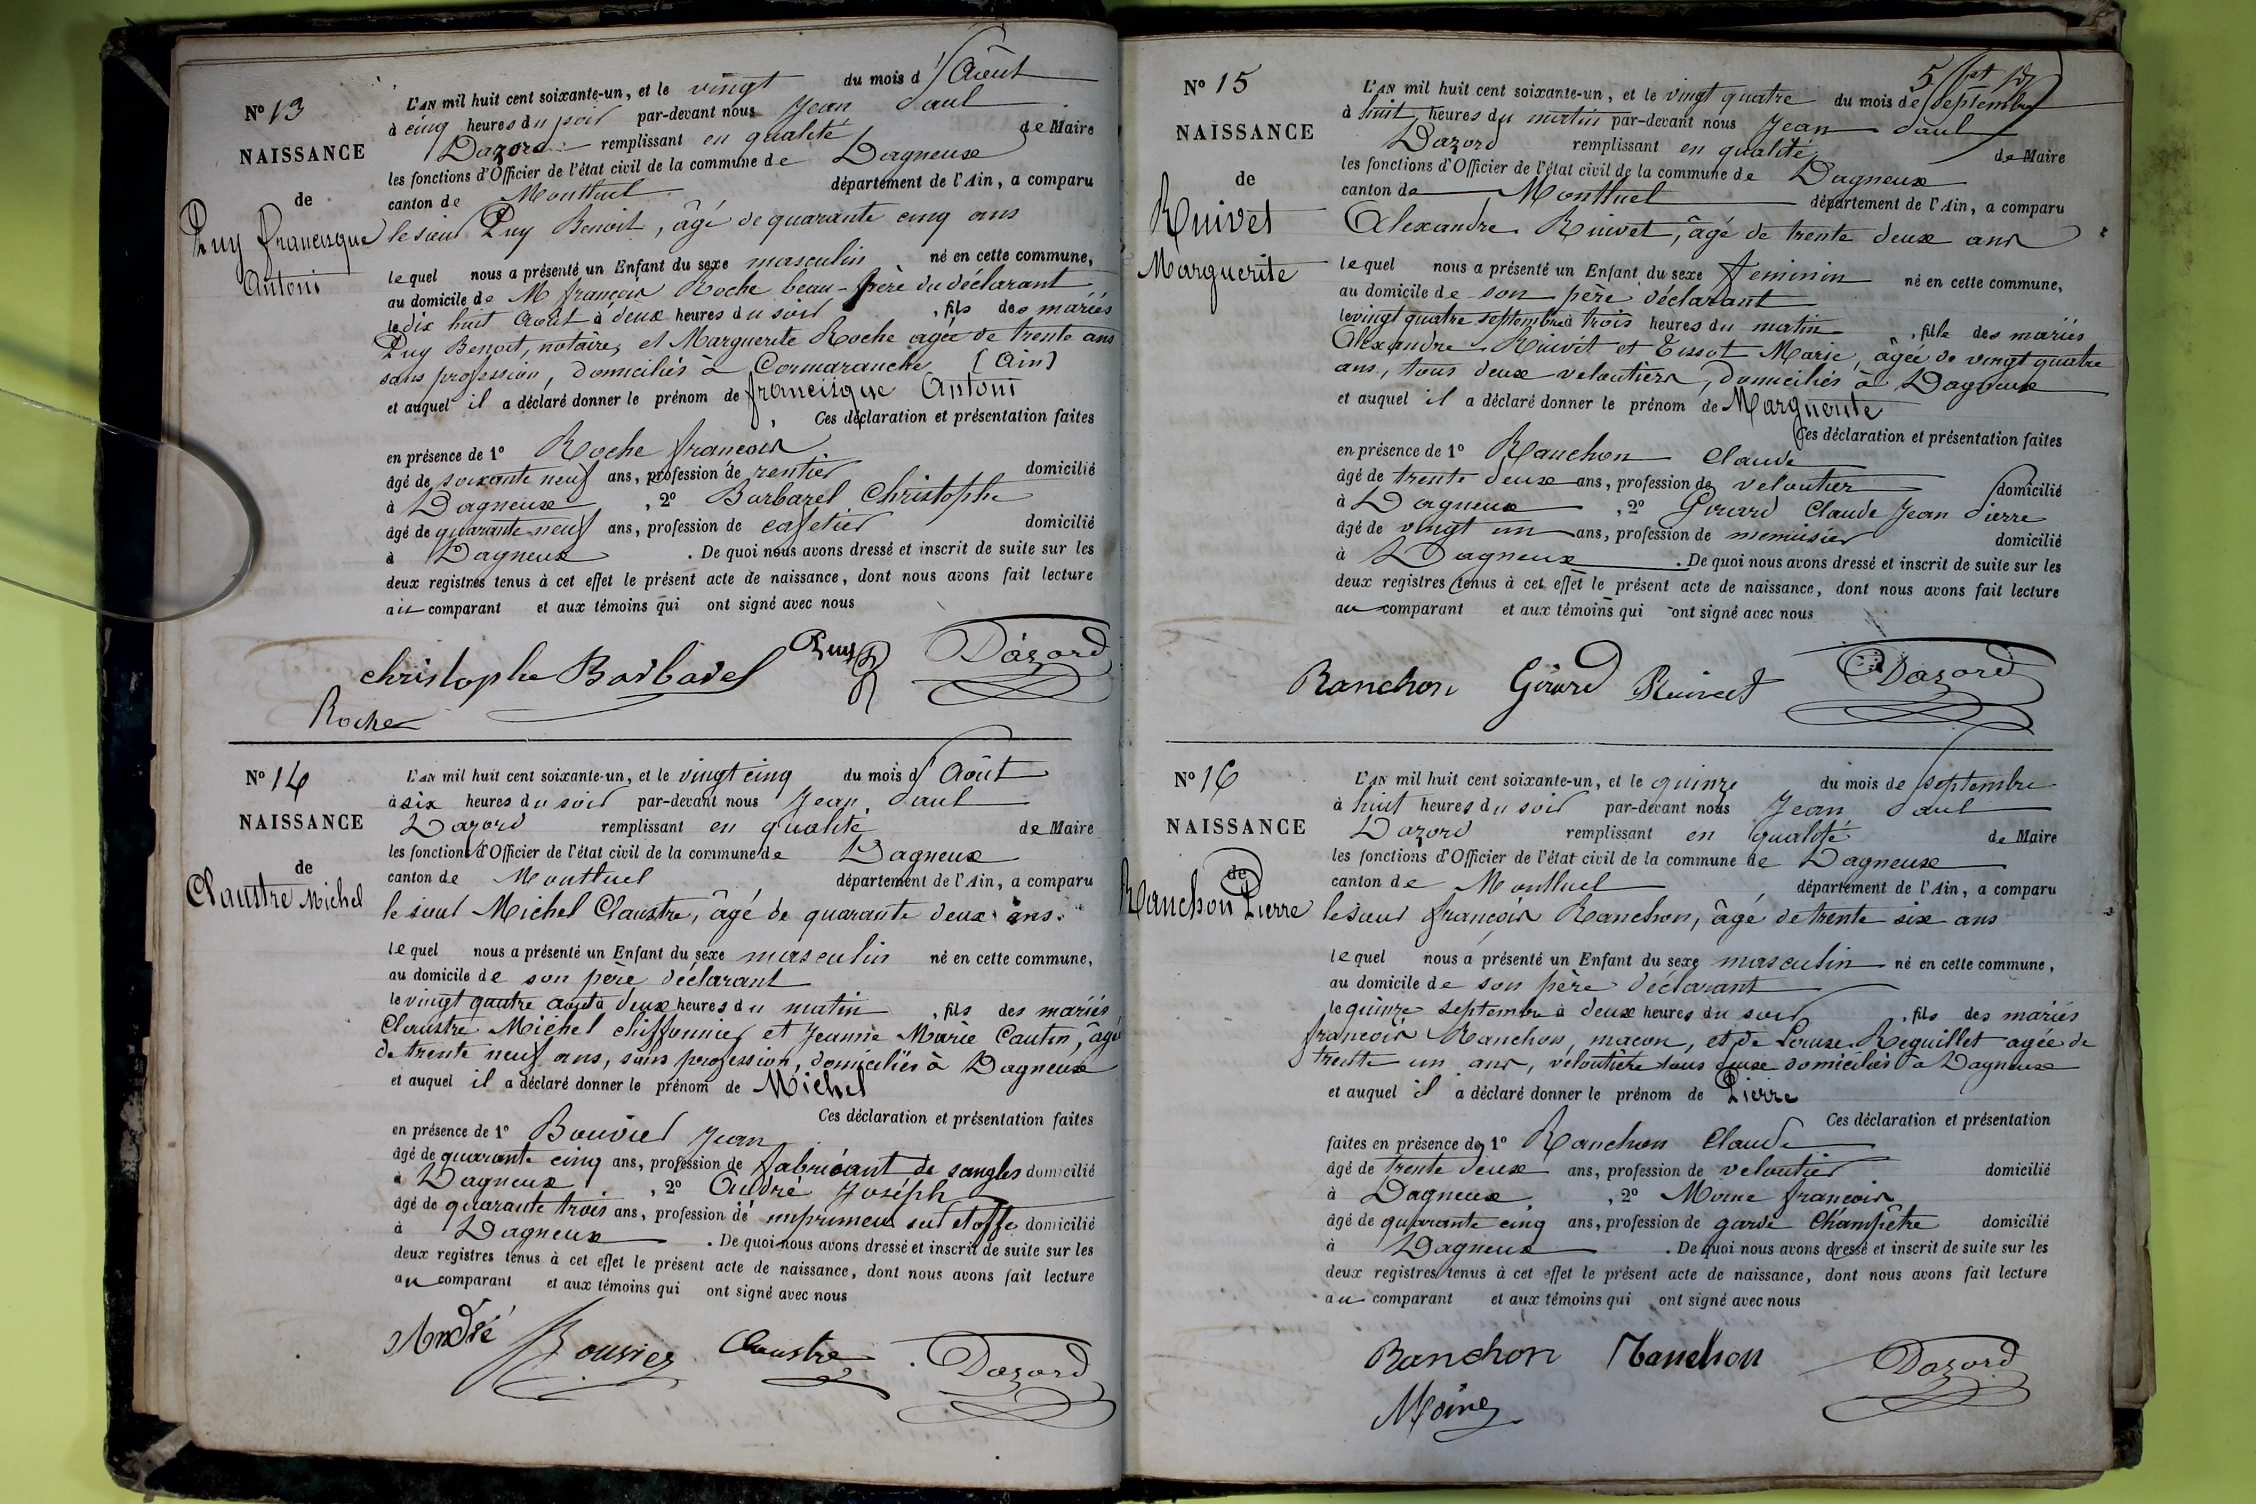 N° 13
NAISSANCE
de
Puy francisque
Antoni
L'AN mil huit cent soixante-un, et le vingt du mois d'Août
à cinq heures du soir par-devant nous Jean Paul
Dazord remplissant en qualité de Maire
les fonctions d'Officier de l'état civil de la commune de Dagneux
canton de Montluel département de l'Ain, a comparu
le sieur Puy Benoit, âgé de quarante cinq ans
lequel nous a présenté un Enfant du sexe masculin né en cette commune,
au domicile de M françois Roche beau-père du déclarant
le dix huit Août à deux heures du soir, fils des mariés
Puy Benoit, notaire, et Marguerite Roche agée de trente ans
sans profession, domiciliés à Cormaranche (Ain)
et auquel il a déclaré donner le prénom de francisque Antoni
Ces déclaration et présentation faites
en présence de 1° Roche françois
âgé de soixante neuf ans, profession de rentier domicilié
à Dagneux, 2° Barbarel Christophe
âgé de quarante neuf ans, profession de cafetier domicilié
à Dagneux. De quoi nous avons dressé et inscrit de suite sur les
deux registres tenus à cet effet le présent acte de naissance, dont nous avons fait lecture
au comparant et aux témoins qui ont signé avec nous
Christophe Barbarel Puy Dazord
Roche
N° 14
NAISSANCE
de
Claustre Michel
L'AN mil huit cent soixante-un, et le vingt cinq du mois d'Août
à six heures du soir par-devant nous Jean Paul
Dazord remplissant en qualité de Maire
les fonctions d'Officier de l'état civil de la commune de Dagneux
canton de Montluel département de l'Ain, a comparu
le sieur Michel Claustre, âgé de quarante deux ans
lequel nous a présenté un Enfant du sexe masculin né en cette commune,
au domicile de son père déclarant
le vingt quatre août à deux heures du matin, fils des mariés
Claustre Michel chiffonnier et Jeanne Marie Cautin, âgé
de trente neuf ans, sans profession, domiciliés à Dagneux
et auquel il a déclaré donner le prénom de Michel
Ces déclaration et présentation faites
en présence de 1° Bouvier Jean
âgé de quarante cinq ans, profession de fabricant de sangles domicilié
à Dagneux, 2° André Joséph
âgé de quarante trois ans, profession de imprimeur sur étoffe domicilié
à Dagneux. De quoi nous avons dressé et inscrit de suite sur les
deux registres tenus à cet effet le présent acte de naissance, dont nous avons fait lecture
au comparant et aux témoins qui ont signé avec nous
André Bouvier Claustre Dazord
N° 15
NAISSANCE
de
Ruivet
Marguerite
5
L'AN mil huit cent soixante-un, et le vingt quatre du mois de septembre
à huit heures du matin par-devant nous Jean Paul
Dazord remplissant en qualité de Maire
les fonctions d'Officier de l'état civil de la commune de Dagneux
canton de Montluel département de l'Ain, a comparu
Alexandre Ruivet, âgé de trente deux ans
lequel nous a présenté un Enfant du sexe feminin né en cette commune,
au domicile de son père déclarant
le vingt quatre septembre à trois heures du matin, fille des mariés
Alexandre Ruivet et Tissot Marie, âgée de vingt quatre
ans, tous deux veloutiers, domiciliés à Dagneux
et auquel il a déclaré donner le prénom de Marguerite
Ces déclaration et présentation faites
en présence de 1° Ranchon Claude
âgé de trente deux ans, profession de veloutier domicilié
à Dagneux, 2° Girard Claude Jean Pierre
âgé de vingt un ans, profession de menuisier domicilié
à Dagneux. De quoi nous avons dressé et inscrit de suite sur les
deux registres tenus à cet effet le présent acte de naissance, dont nous avons fait lecture
au comparant et aux témoins qui ont signé avec nous
Ranchon Girard Ruivet Dazord
N° 16
NAISSANCE
de
Ranchon Pierre
L'AN mil huit cent soixante-un, et le quinze du mois de septembre
à huit heures du soir par-devant nous Jean Paul
Dazord remplissant en qualité de Maire
les fonctions d'Officier de l'état civil de la commune de Dagneux
canton de Montluel, département de l'Ain, a comparu
le sieur françois Ranchon, âgé de trente six ans
lequel nous a présenté un Enfant du sexe masculin né en cette commune,
au domicile de son père déclarant
le quinze septembre à deux heures du soir, fils des mariés
françois Ranchon, maçon, et de Louise Reguillet agée de
trente un ans, veloutière tous deux domiciliés à Dagneux
et auquel il a déclaré donner le prénom de Pierre
Ces déclaration et présentation
faites en présence de 1° Ranchon Claude
âgé de trente deux ans, profession de veloutier domicilié
à Dagneux, 2° Moine françois
âgé de quarante cinq ans, profession de garde Champêtre domicilié
à Dagneux. De quoi nous avons dressé et inscrit de suite sur les
deux registres tenus à cet effet le présent acte de naissance, dont nous avons fait lecture
au comparant et aux témoins qui ont signé avec nous
Ranchon Ranchon Dazord
Moine